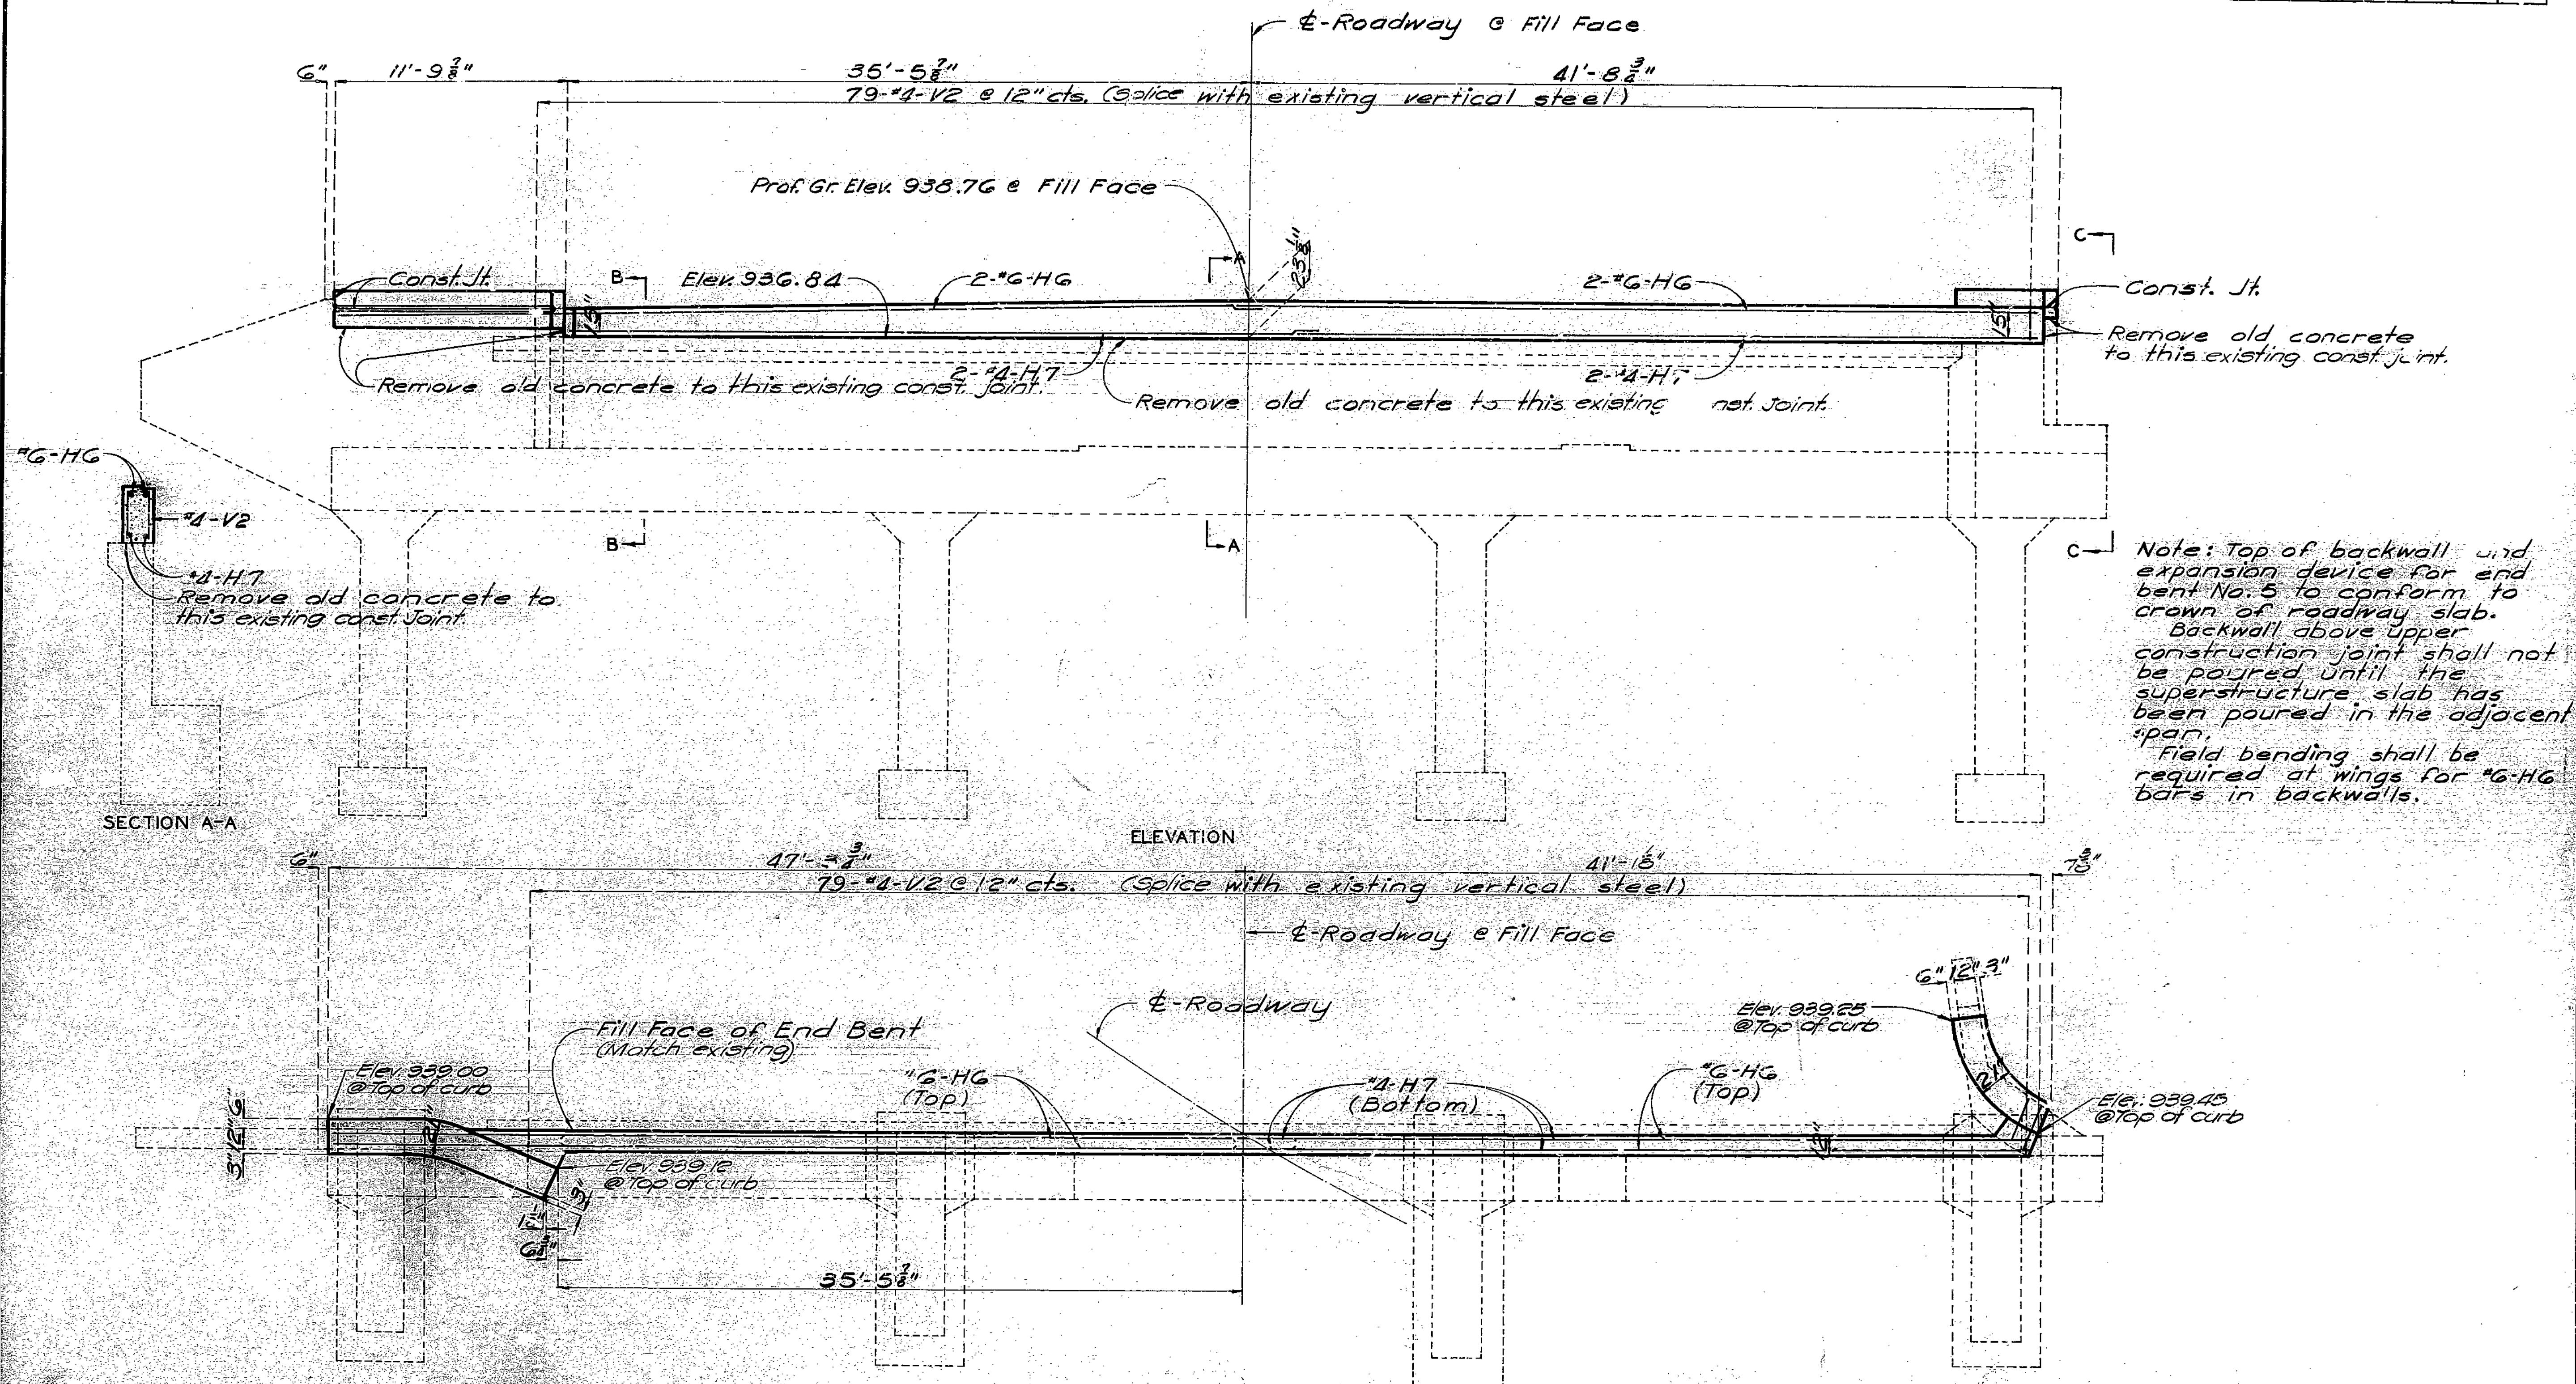 ℄-Roadway @ Fill Face
6" 11'-9⅞" 35'-5⅞" 41'-8¾"
79-#4-V2 @ 12" cts. (Splice with existing vertical steel)
Prof. Gr. Elev. 938.76 @ Fill Face
23⅛"
C
Const. Jt.
B
Elev. 936.84
2-#6-H6
A
2-#6-H6
Const. Jt.
15"
15"
Remove old concrete
to this existing const. joint.
2-#4-H7
Remove old concrete to this existing const. joint.
2-#4-H7
Remove old concrete to this existing joint.
#6-H6
#4-V2
B
A
C
#4-H7
Remove old concrete to
this existing const. Joint.
SECTION A-A
Note: Top of backwall and
expansion device for end
bent No. 5 to conform to
crown of roadway slab.
Backwall above upper
construction joint shall not
be poured until the
superstructure slab has
been poured in the adjacent
span.
Field bending shall be
required at wings for #6-H6
bars in backwalls.
ELEVATION
6" 47'- ¾" 41'-1⅛"
79-#4-V2 @ 12" cts. (Splice with existing vertical steel)
℄-Roadway @ Fill Face
6" 12" 3"
℄-Roadway
Elev. 939.25
@ Top of curb
Fill Face of End Bent
(Match existing)
Elev. 939.00
@ Top of curb
#6-H6
(Top)
#4-H7
(Bottom)
#6-H6
(Top)
Elev. 939.45
@ Top of curb
3" 12" 6"
Elev. 939.12
@ Top of curb
3"
35'-5⅞"